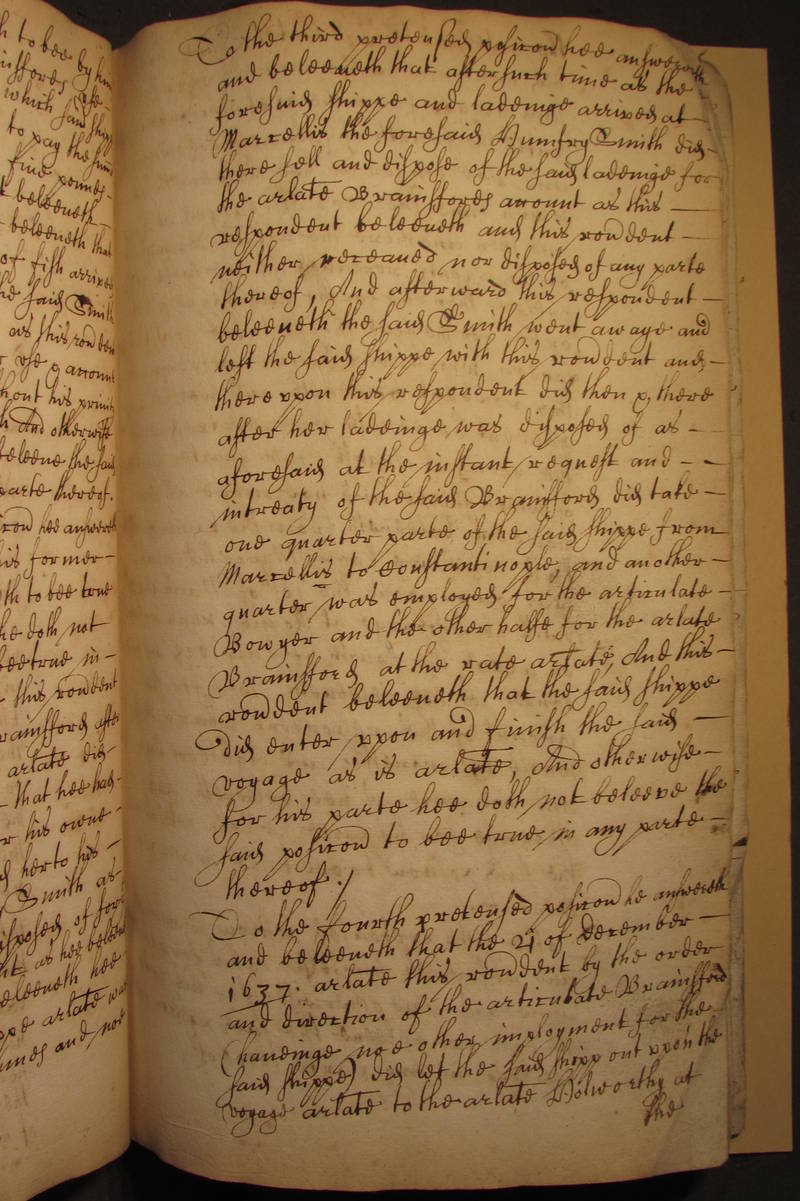 h to bee by him
which said shipp
to pay the said
five pennes
t beleeveth
beleeveth that
of fish arrived
he said Smith
as this rondent
r use & arount
hout his privity
h And otherwise
beleeve the said
parte thereof.
icon hee answereth
his former —
th to bee true
he doth not
bee true in —
this rondent
rainsford after
arlate did —
- that hee had
r his owne —
d her to his —
Smith as
isposed of for
nt as hee beleev
beleeveth hee
ppe arlate was
nnes and not
To the third pretensed posicon hee answereth
and beleeveth that after such time as the
foresaid shippe and ladeinge arrived at
Marcellis the foresaid Humfry Smith did —
there sell and dispose of the said ladeinge for
the arlate Brainsfords arount as this —
respondent beleeveth and this rondent —
neither receaved nor disposed of any parte
thereof, And afterward this respondent —
beleeveth the said Smith went awaye and
left the said shippe with this rondent and —
thereuppon this respondent did then & there
after her ladeinge was disposed of as —
aforesaid at the instant request and —
intreaty of the said Brainsford did take —
one quarter parte of the said shippe from
Marcellis to Constantinople, and another —
quarter was employed for the articulate —
Bowyer and the other halfe for the arlate
Brainsford at the rate arlate, And this —
rondent beleeveth that the said shippe
did enter uppon and finish the said —
voyage as is arlate, And otherwise —
for his parte hee doth not beleeve the
said posicon to bee true in any parte —
thereof ./
To the fourth pretensed posicon he answereth
and beleeveth that the 21 of December —
1637. arlate this rondent by the order
and direction of the articulate Brainsford
(haveinge noe other imployment for the
said shippe) did let the said shipp out uppon the
voyage arlate to the arlate Holworthy at
the